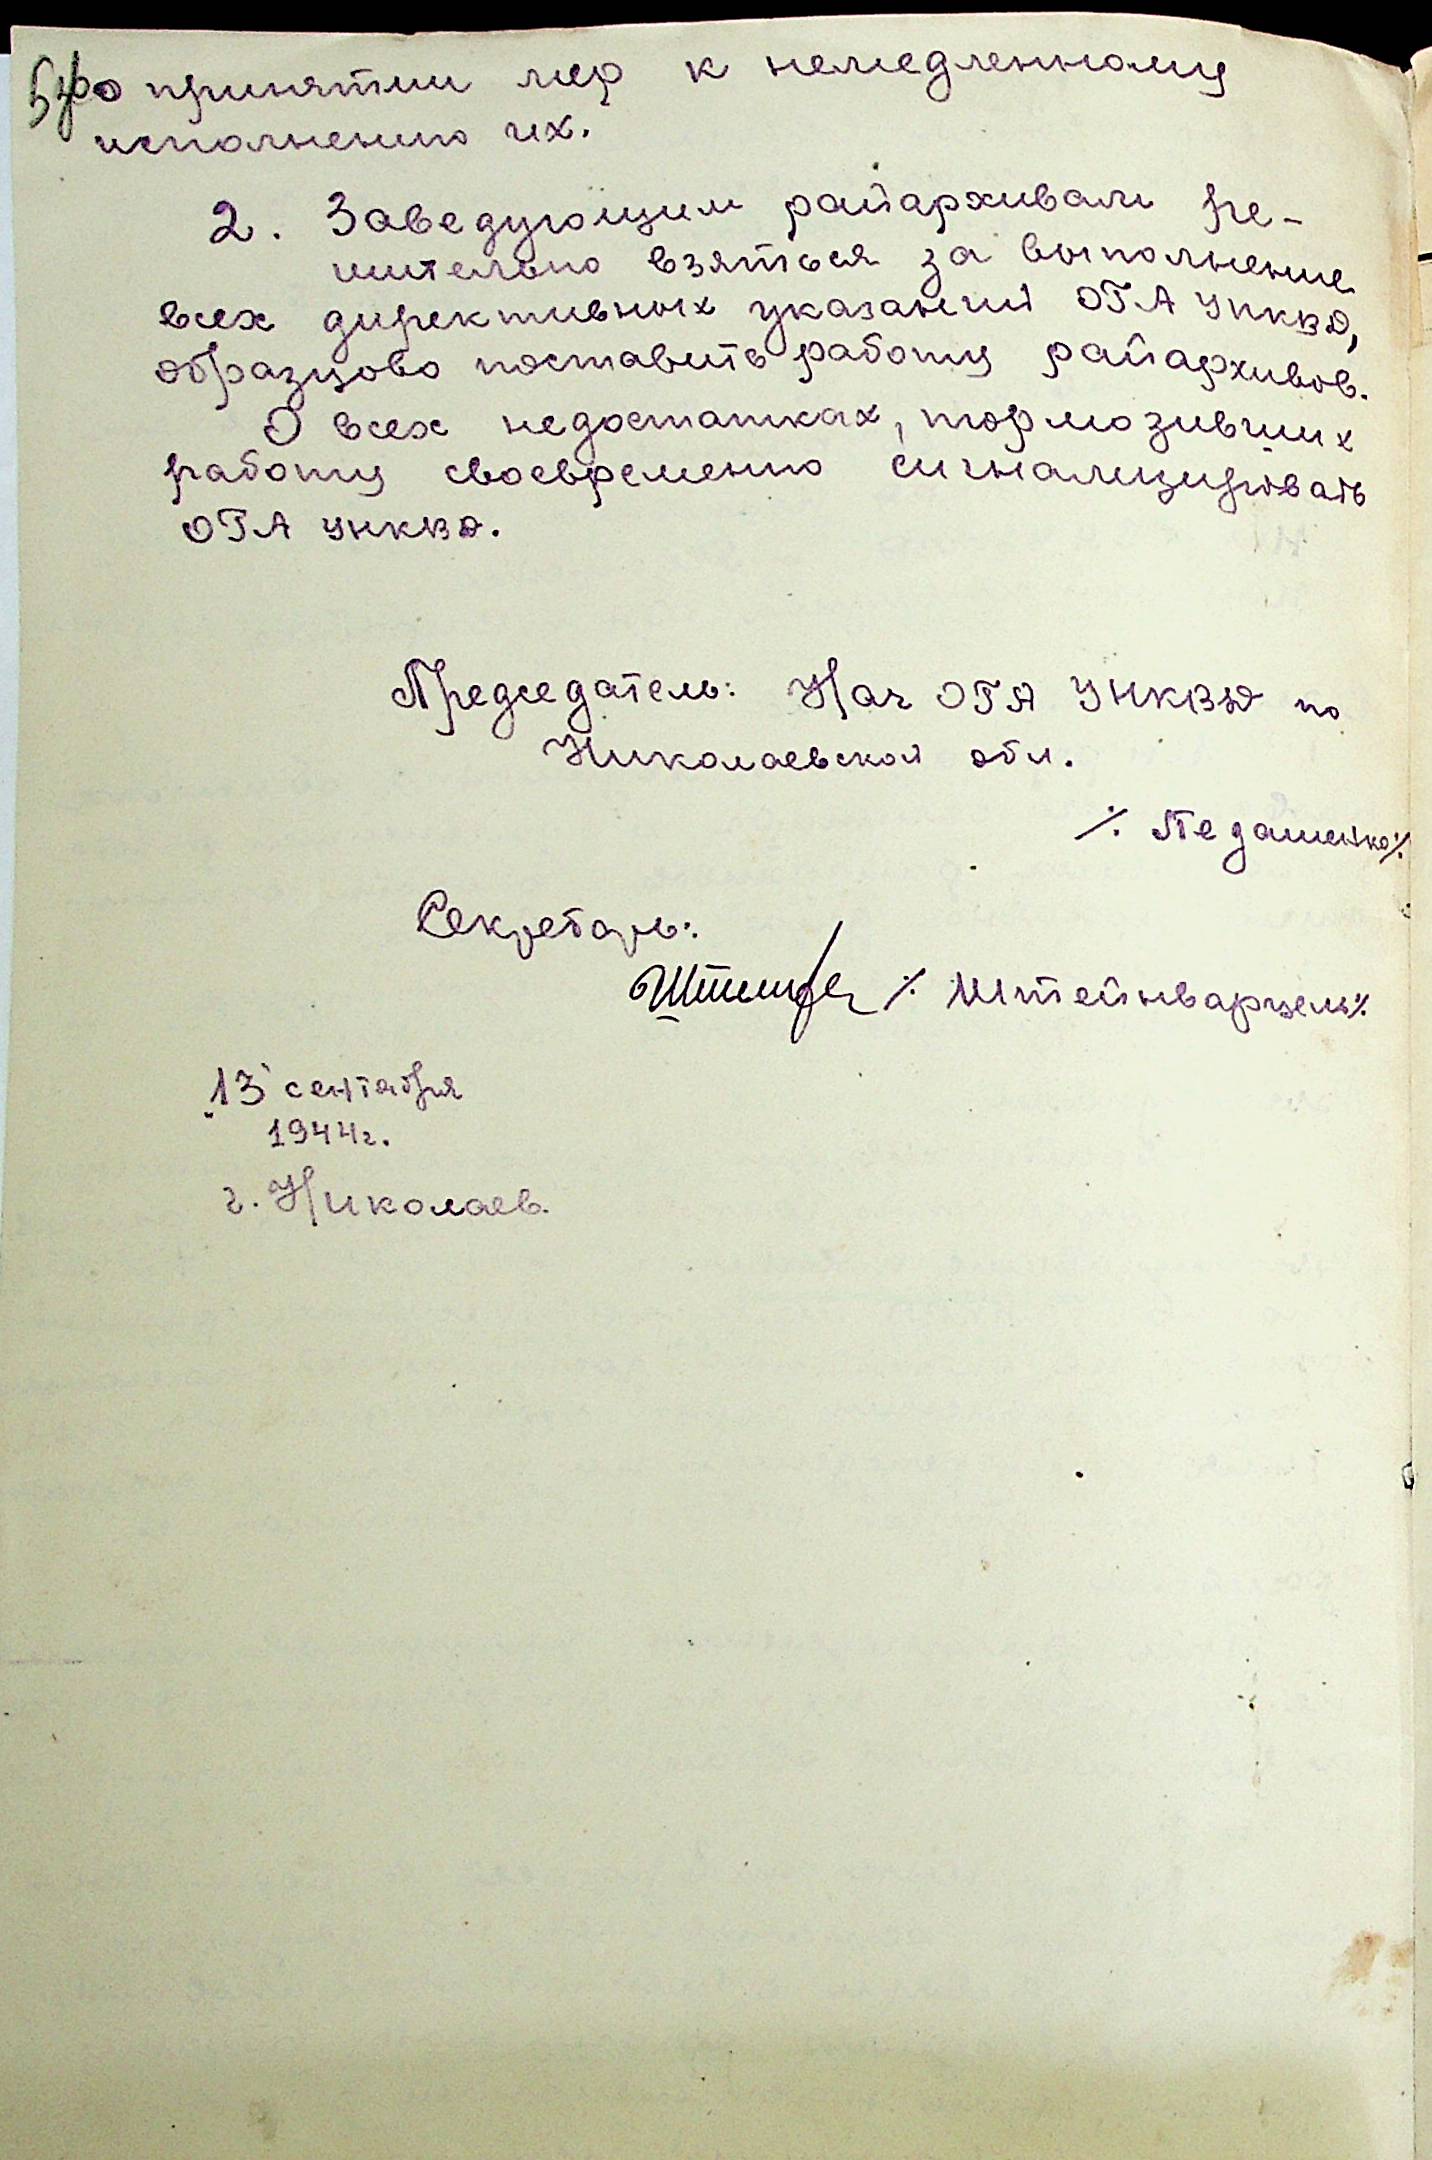 о принятии мер к немедленному
исполнению их.
2. Заведующим райархивам ре-
шительно взяться за выполнение
всех директивных указаний ОГА УНКВД,
образцово поставить работу райархивов.
О всех недостатках, тормозивших
работу своевременно сигнализировать
ОГА УНКВД.
Председатель: Нач ОГА УНКВД по
Николаевской обл.
⁒ Педашенко ⁒
Секретарь:
⁒ Штейнварцель ⁒
"13" сентября
1944г.
г. Николаев.